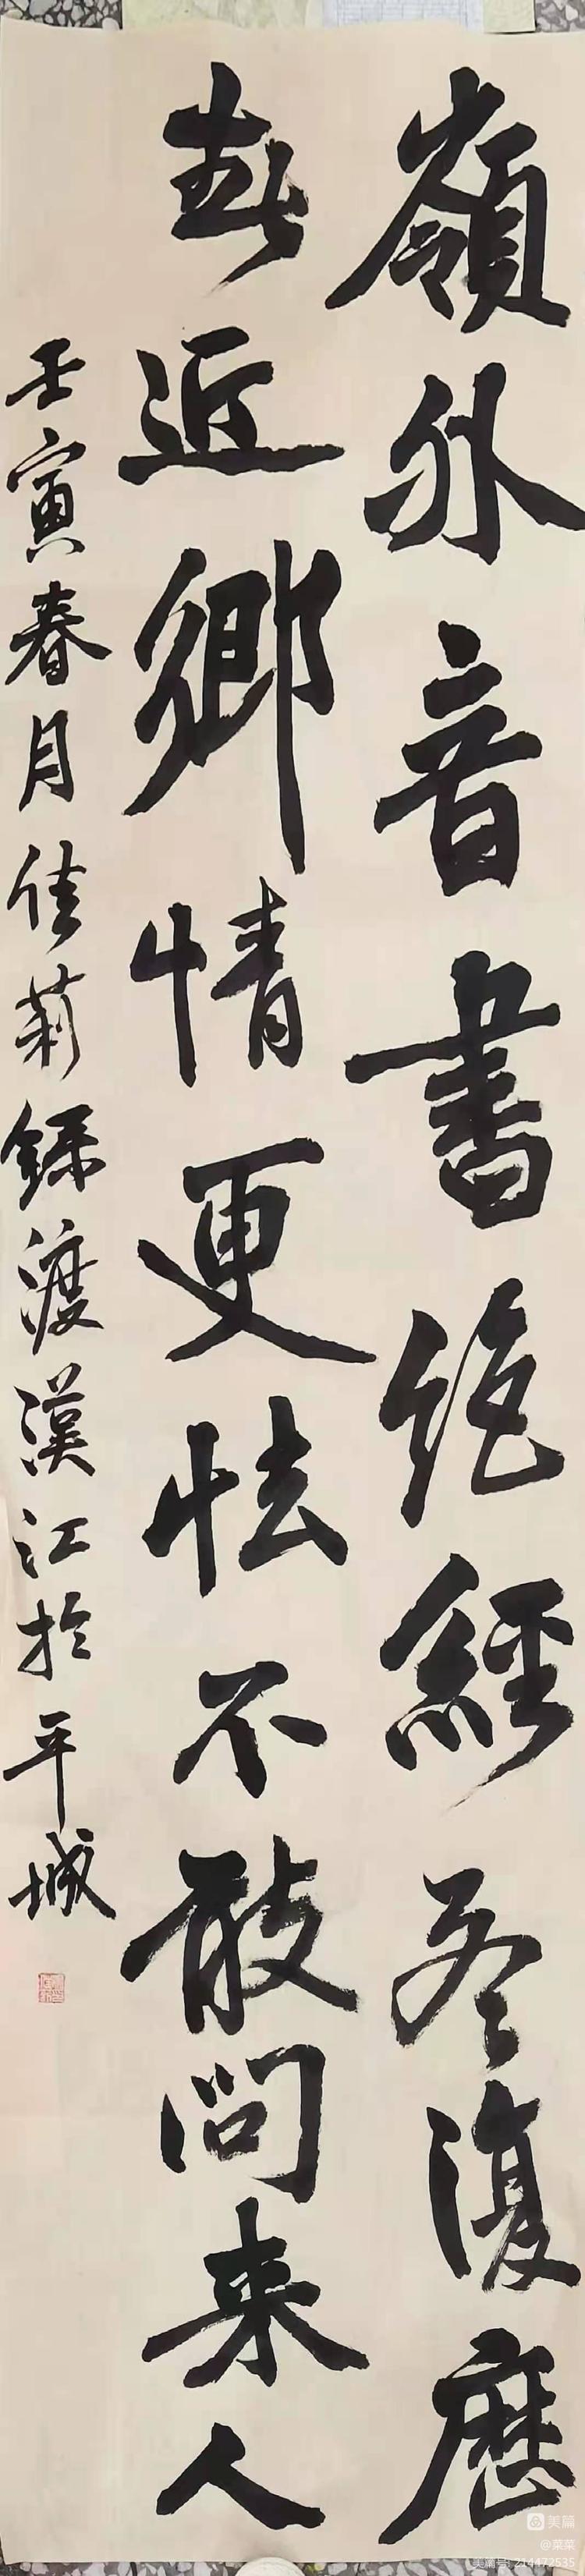 嶺外音書絕經冬復歷
春近鄉情更怯不敢問来人
壬寅春月佳莉錄渡漢江於平城
美篇
@菜菜
美篇号: 214472535